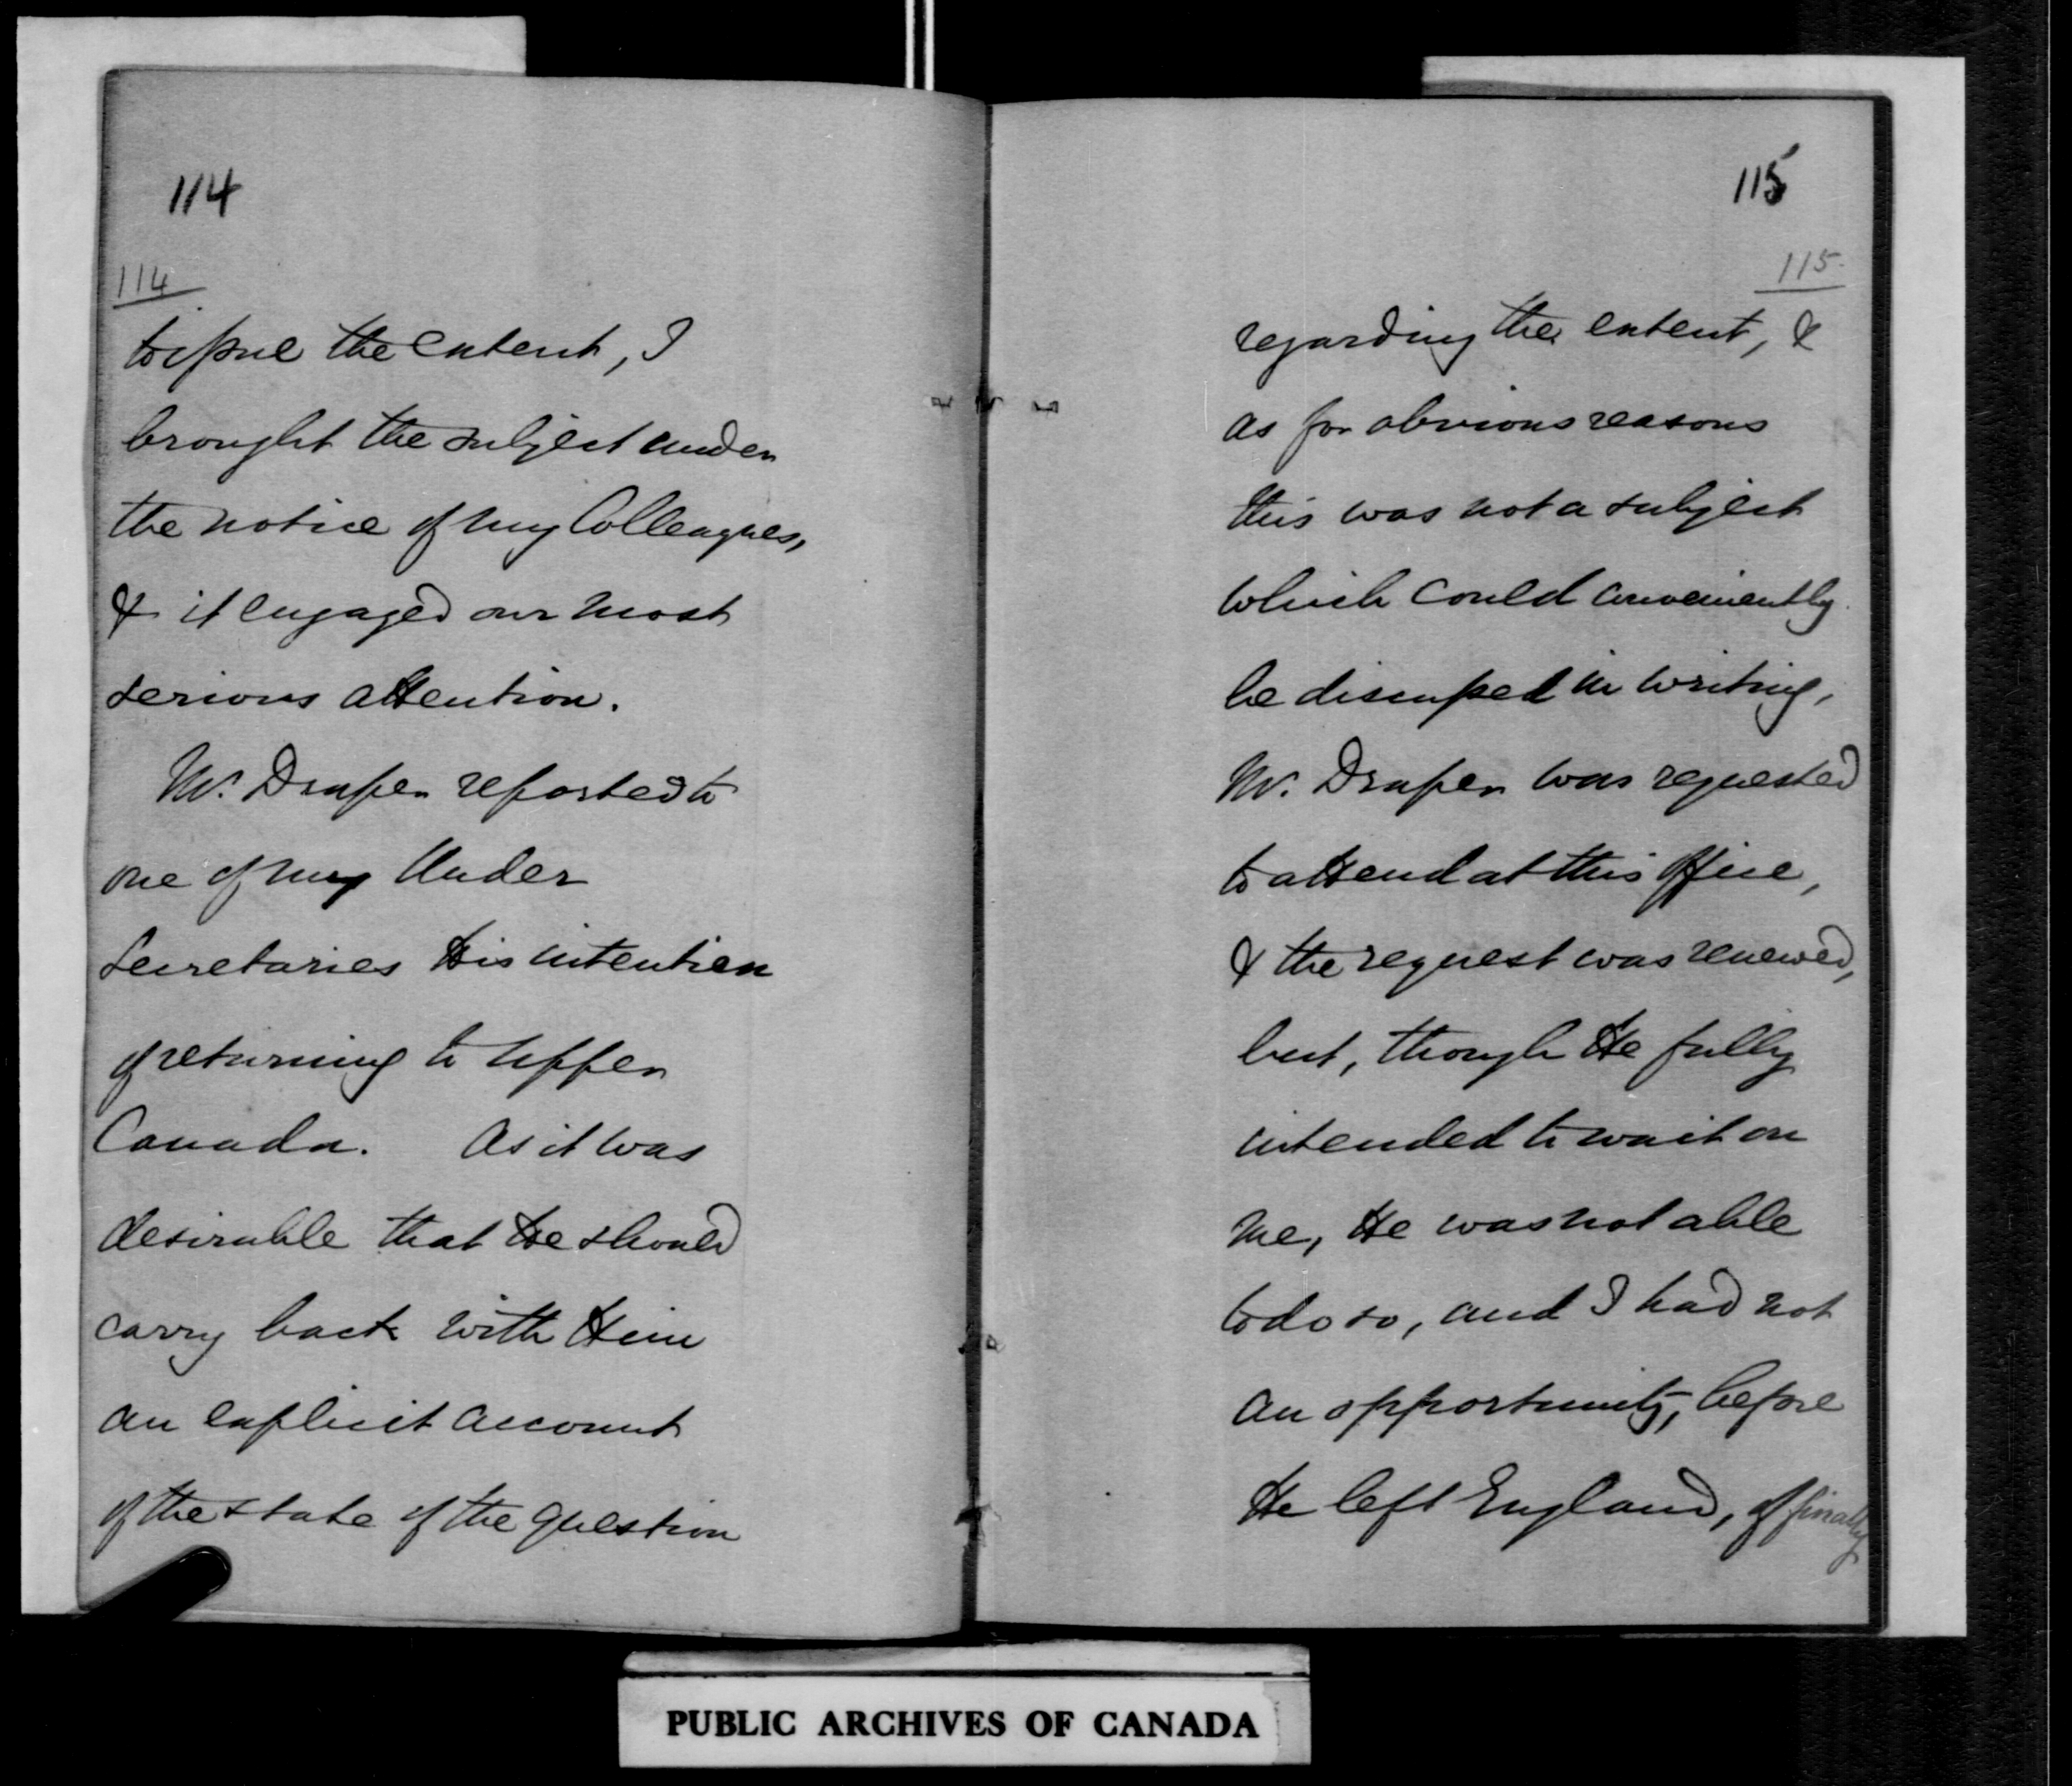 114
114
to issue the extent, I
brought the subject under
the notice of my Colleagues,
& it engaged our most
serious attention.
Mr. Draper reported to
one of my Under
Secretaries His intention
of returning to Upper
Canada. As it was
desirable that He should
carry back with Him
an explicit account
of the state of the question
115
115.
regarding the extent, &
as for obvious reasons
this was not a subject
which could conveniently
be discussed in writing,
Mr. Draper was requested
to attend at this Office,
& the request was renewed,
but, though He fully
intended to wait on
me, He was not able
to do so, and I had not
an opportunity, before
He left England, of finally
PUBLIC ARCHIVES OF CANADA